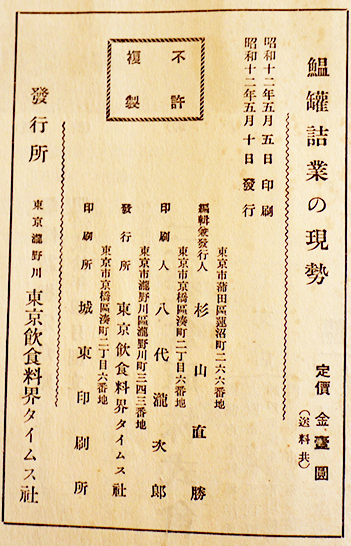 鰮罐詰業の現勢
定價 金壹圓
(送料共)
昭和十二年五月五日 印刷
昭和十二年五月十日 發行
不許
複製
東京市蒲田區蓮沼町二六六番地
編輯兼發行人 杉山直勝
東京市京橋區湊町二丁目六番地
印刷人 八代瀧次郎
東京市瀧野川區瀧野川町二四三番地
發行所 東京飲食料界タイムス社
東京市京橋區湊町二丁目六番地
印刷所 城東印刷所
發行所 東京瀧野川 東京飲食料界タイムス社